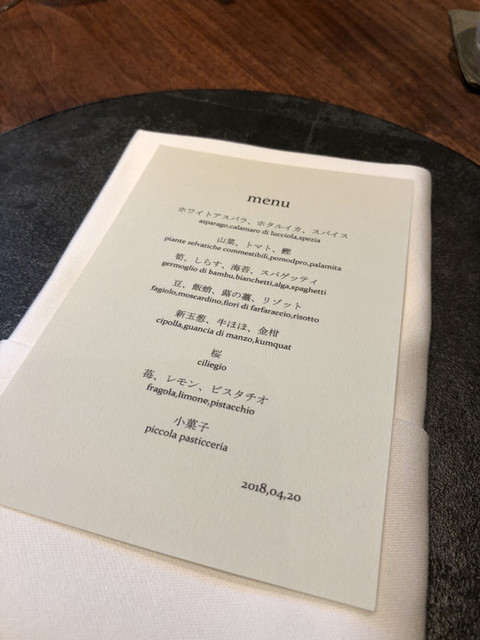 menu
ホワイトアスパラ、ホタルイカ、スパイス
asparago,calamaro di lucciola,spezia
山菜、トマト、鰹
piante selvatiche commestibili,pomodpro,palamita
筍、しらす、海苔、スパゲッティ
germoglio di bambu,bianchetti,alga,spaghetti
豆、飯蛸、蕗の薹、リゾット
fagiolo,moscardino,fiori di farfaraccio,risotto
新玉葱、牛ほほ、金柑
cipolla,guancia di manzo,kumquat
桜
ciliegio
苺、レモン、ピスタチオ
fragola,limone,pistacchio
小菓子
piccola pasticceria
2018,04,20